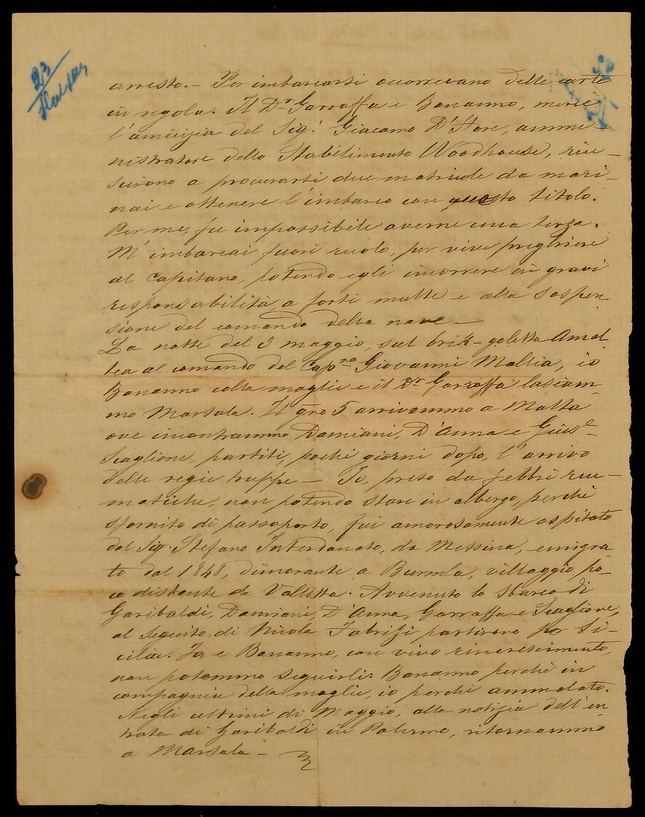 23
arresto. — Per imbarcarsi occorrevano delle carte
in regola. Il Dr Garraffa e Bonanno, mercè
l'amicizia del Sigr Giacomo D'Hore, ammi-
nistratore dello Stabilimento Woodhouse, riu-
scirono a procurarsi due matricole da mari-
nai e ottenere l'imbarco con questo titolo.
Per me, fu impossibile averne una terza.
M'imbarcai fuori ruolo, per vive preghiere
al Capitano, potendo egli incorrere in gravi
responsabilità, a forti multe e alla sospen-
sione del comando della nave —
La notte del 3 maggio, sul brik-goletta Amal-
tea al comando del Capno Giovanni Mallia, io
Bonanno colla moglie e il Dr Garraffa lasciam-
mo Marsala. Il gno 5 arrivammo a Malta
ove incontrammo Damiani, D'Anna e Giuse
Scaglione, partiti, pochi giorni dopo, l'arrivo
delle regie truppe — Io, preso da febbri reu-
matiche, non potendo stare in albergo, perchè
sfornito di passaporto, fui amorosamente ospitato
dal Sigr Stefano Interdonato, da Messina, emigra-
to dal 1848, dimorante a Burmla, villaggio po-
co distante da Valletta. Avvenuto lo sbarco di
Garibaldi, Damiani, D'Anna, Garraffa e Scaglione,
al seguito di Nicola Fabrizi partirono per Si-
cilia. Io e Bonanno, con vivo rincrescimento,
non potemmo seguirli. Bonanno perchè in
compagnia della moglie, io perchè ammalato.
Negli ultimi di Maggio, alla notizia dell'in-
trata di Garibaldi in Palermo, ritornammo
a Marsala —